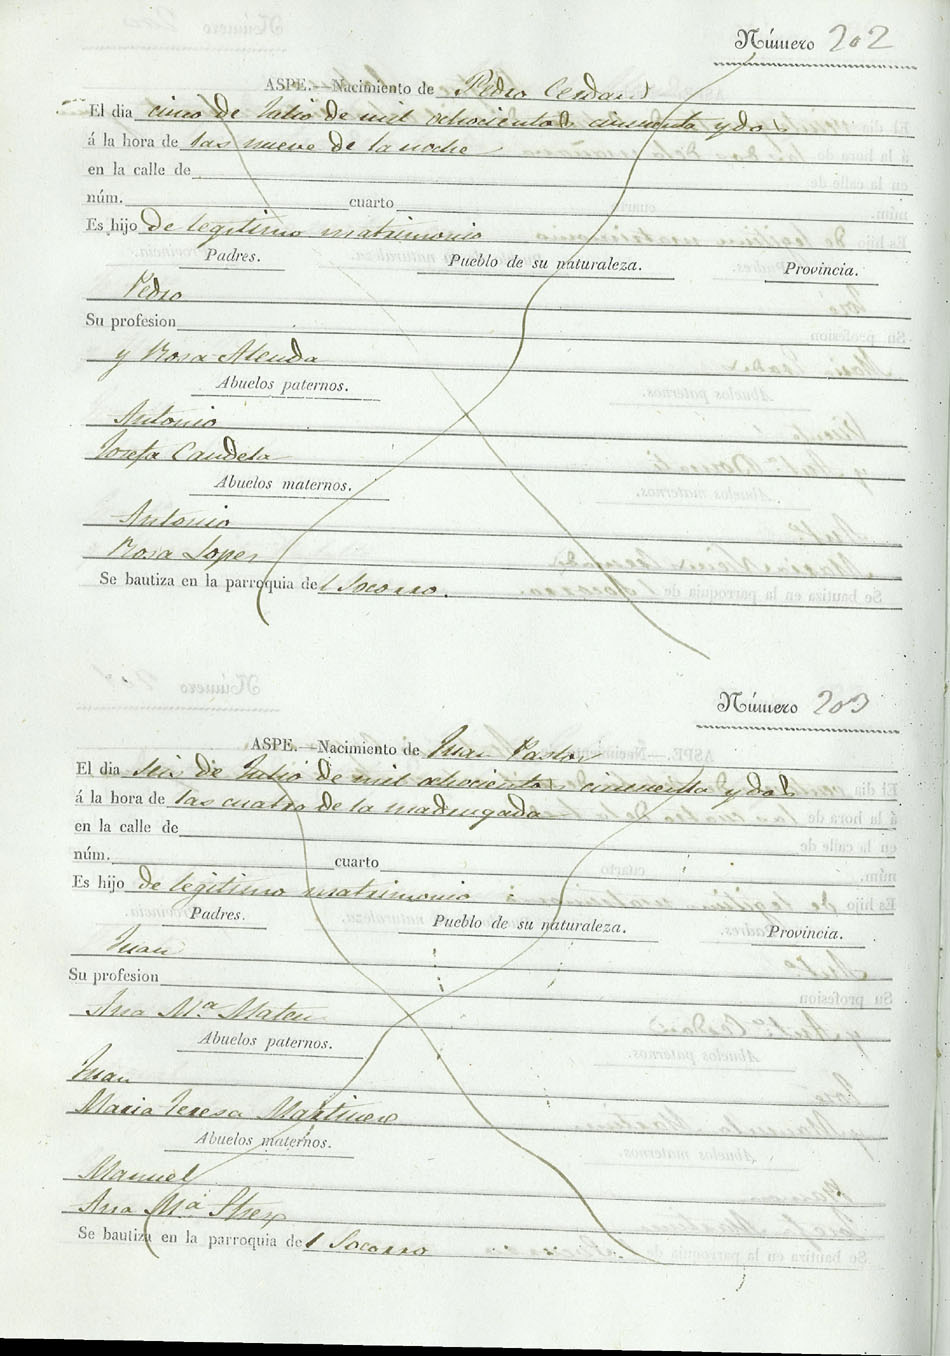 Número 202
ASPE.—Nacimiento de Pedro Cerdan
El dia cinco de Julio de mil ochocientos cincuenta y dos
á la hora de las nueve de la noche
en la calle de
núm. cuarto
Es hijo de legitimo matrimonio
Padres. Pueblo de su naturaleza. Provincia.
Pedro
Su profesion
y Rosa Alenda
Abuelos paternos.
Antonio
Josefa Candela
Abuelos maternos.
Antonio
Rosa Lopez
Se bautiza en la parroquia del Socorro.
Número 203
ASPE.—Nacimiento de Juan Pastor
El dia seis de Julio de mil ochocientos cincuenta y dos
á la hora de las cuatro de la madrugada
en la calle de
núm. cuarto
Es hijo de legitimo matrimonio
Padres. Pueblo de su naturaleza. Provincia.
Juan
Su profesion
Ana Mª Mateu
Abuelos paternos.
Juan
Maria Teresa Martinez
Abuelos maternos.
Manuel
Ana Mª
Se bautiza en la parroquia del Socorro